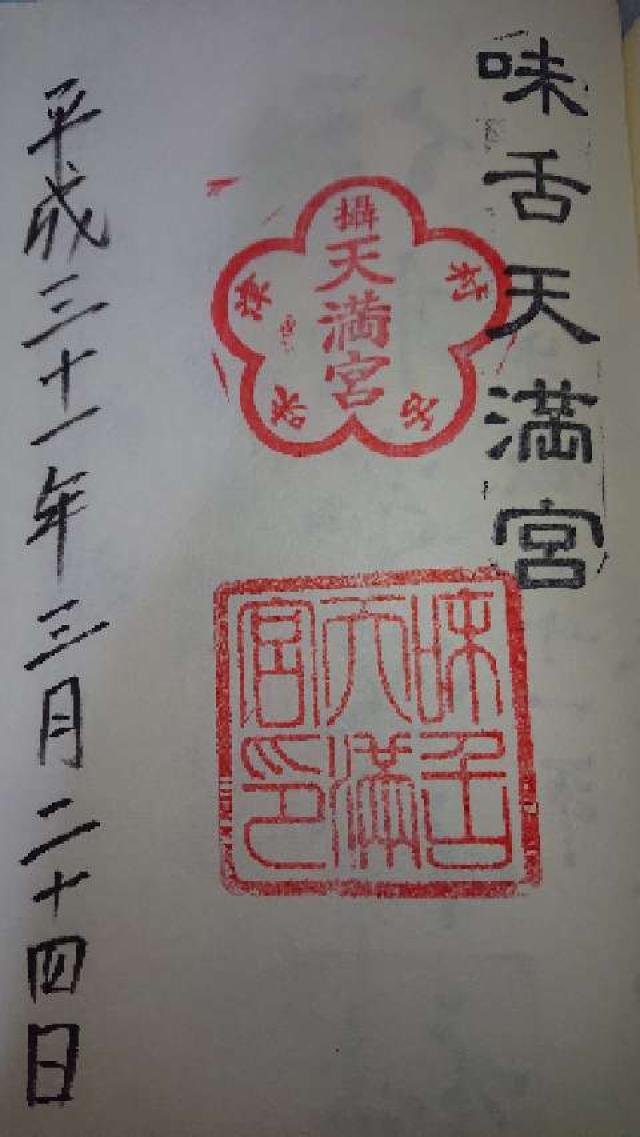 味舌天満宮
攝
天満宮
味舌天満宮印
平成三十一年三月二十四日